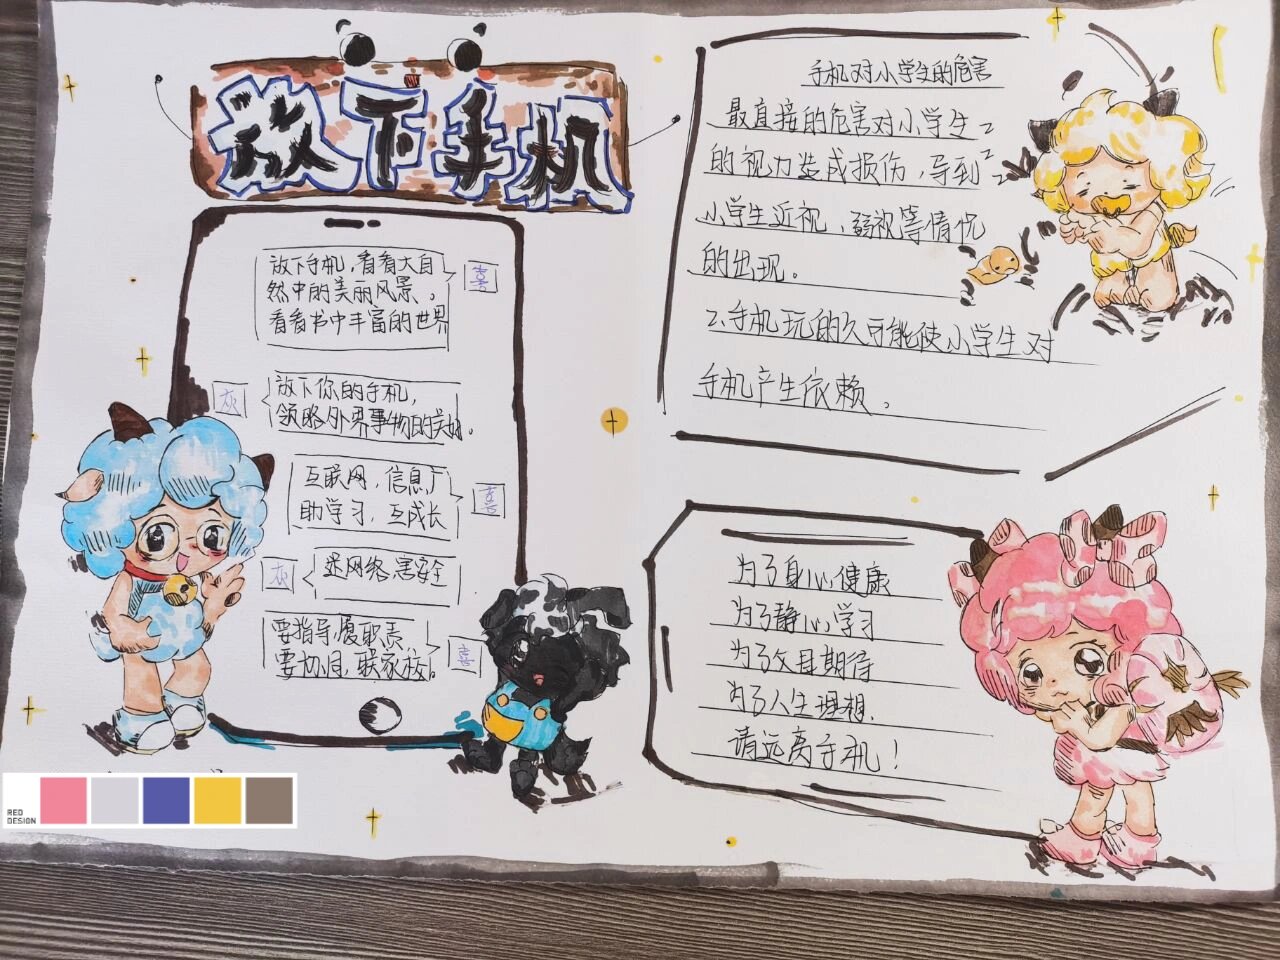 放下手机
放下手机，看看大自
然中的美丽风景、
看看书中丰富的世界
喜
灰
放下你的手机，
领略外界事物的美好。
互联网，信息广
助学习，互成长
喜
灰
迷网络，害安全
要指导，履职责，
要协同，联家校。
喜
手机对小学生的危害
最直接的危害对小学生
的视力造成损伤，导到
小学生近视、弱视等情况
的出现。
2、手机玩的久可能使小学生对
手机产生依赖。
为了身心健康
为了静心学习
为了父母期待
为了人生理想.
请远离手机！
RED
DESIGN